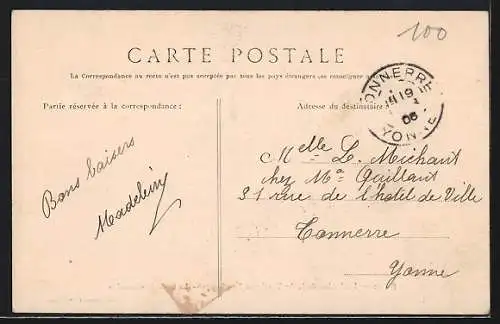 100
CARTE POSTALE
La Correspondance au recto n'est pas acceptée par tous les pays étrangers (se renseigner à
Partie réservée à la correspondance :
Adresse du destinataire
TONNERRE
19
06
YONNE
Bons baisers
Madelein
Melle L. Michaut
chez Ma Guillant
31 rue de l'hotel de Ville
Tonnerre
Yonne